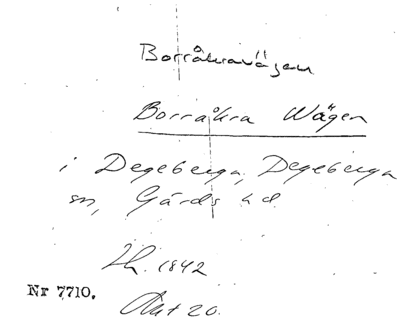 Borråkravägen
Borråkra Wägen
i Degeberga, Degeberga
sn, Gärds hd
1842
Nr 7710.
Akt 20.